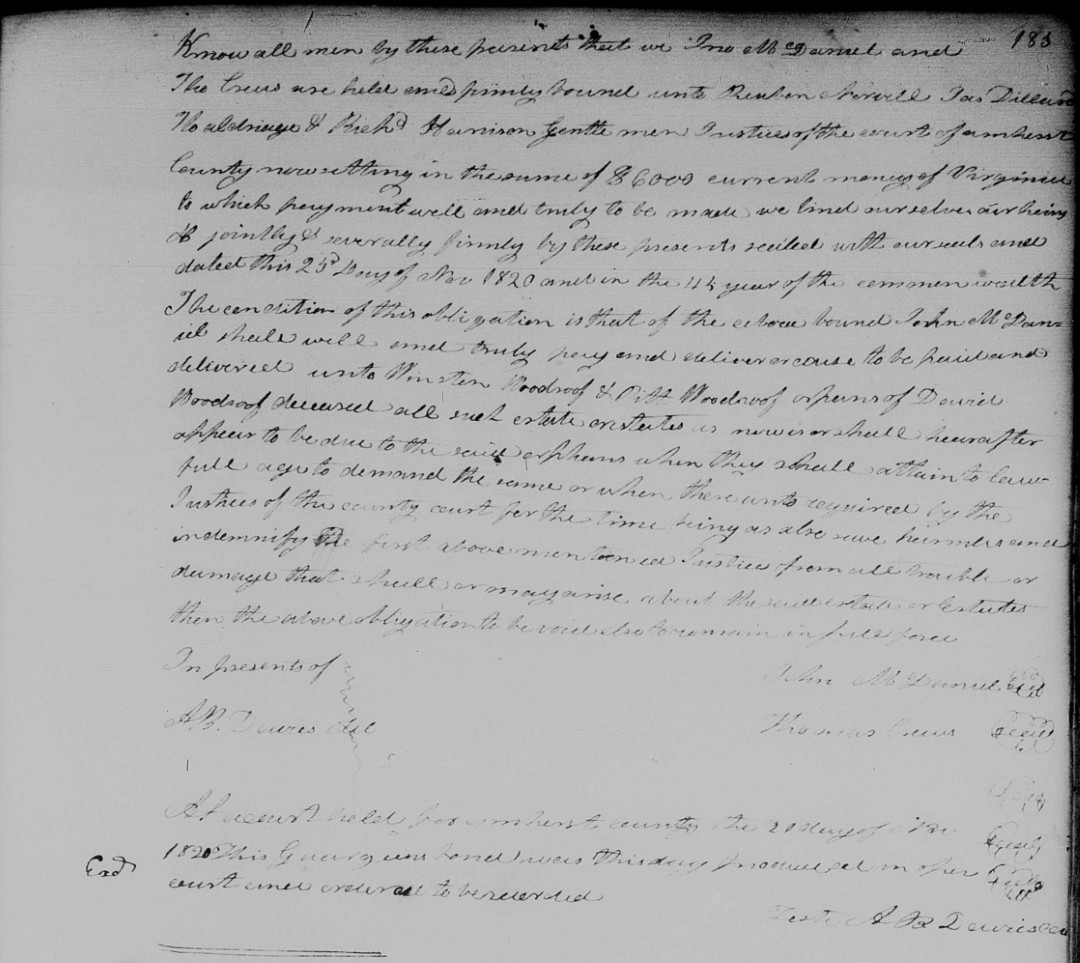 185
Know all men by these presents that we Jno McDaniel and
Tho Crews are held and firmly bound unto Reuben Norvell Jas Dillard
Tho aldridge & Richd Harrison Gentlemen Justices of the court of amherst
County now sitting in the sume of $6000 current money of Virginia
to which payment well and truly to be made we bind ourselves our heirs
& jointly & severally firmly by these presents sealed with our seals and
dated this 23d Day of Nov 1820 and in the 45 year of the common wealth
The condition of this obligation is that of the above bound John McDan-
iel shall well and truly pay and deliver or cause to be paid and
delivered unto Winston Woodroof & Pitt Woodroof orpans of David
Woodroof deceased all such estate or estates as now is or shall hearafter
appear to be due to the said orphans when they shall attain to law-
full age to demand the same or when thereunto required by the
Justices of the county court for the time being as also save harmless and
indemnify the first above mentioned Justices from all trouble or
damage that shall or may arise about the said estate or Estates
then the above obligation to be void else to remain in full force
In presents of
John McDaniel Seal
A.B. Davies
Thomas Crews Seal
At a court held for amherst county the day of
1820 This bond was this day produced in open
court and ordered to be recorded
Exd
Teste A B Davies